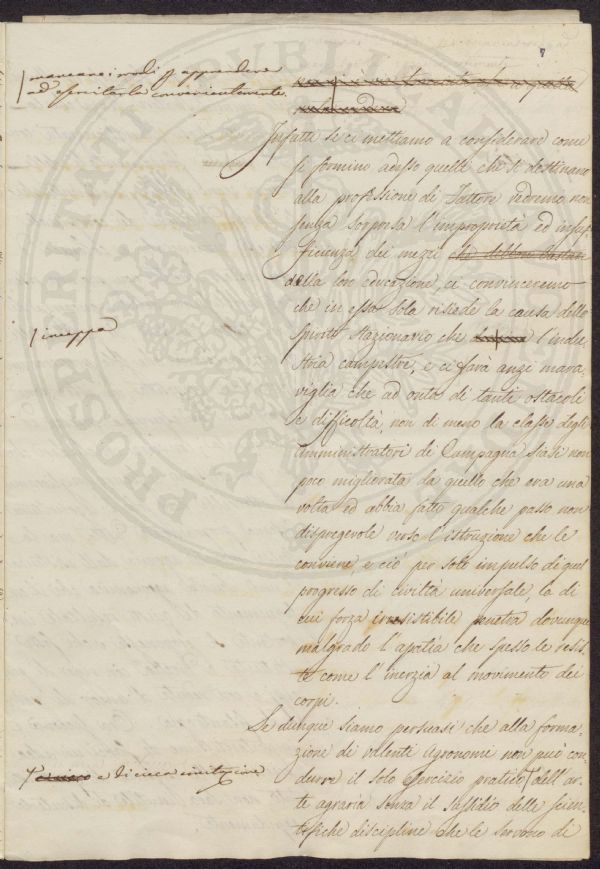 7
mancano i modi per apprendere
ad esercitarla convenientemente.
Infatti se ci mettiamo a considerare come
si formino adesso quelli che si destinano
alla professione di Fattore vedremo non
senza sorpresa l'improprietà ed insuf
ficienza dei mezzi che debbono bastare
della loro educazione, ci convinceremo
che in essa sola risiede la causa dello
spirito stazionario che l'indu
inceppa
stria campestre, e ci farà anzi mara
viglia che ad onta di tanti ostacoli
e difficoltà, non di meno la classe degli
Amministratori di Campagna siasi non
poco migliorata da quello che era una
volta ed abbia fatto qualche passo non
dispregevole verso l'istruzione che le
conviene, e ciò per solo impulso di quel
progresso di civiltà universale, la di
cui forza irresistibile penetra dovunque
malgrado l'apatia che spesso le resis
te come l'inerzia al movimento dei
corpi.
Se dunque siamo persuasi che alla forma
zione di valenti Agronomi non può con
durre il solo esercizio pratico dell'ar
e di cieca imitazione
te agraria senza il sussidio delle scien
tifiche discipline che le servono di
PROSPERITATI PUBLICAE